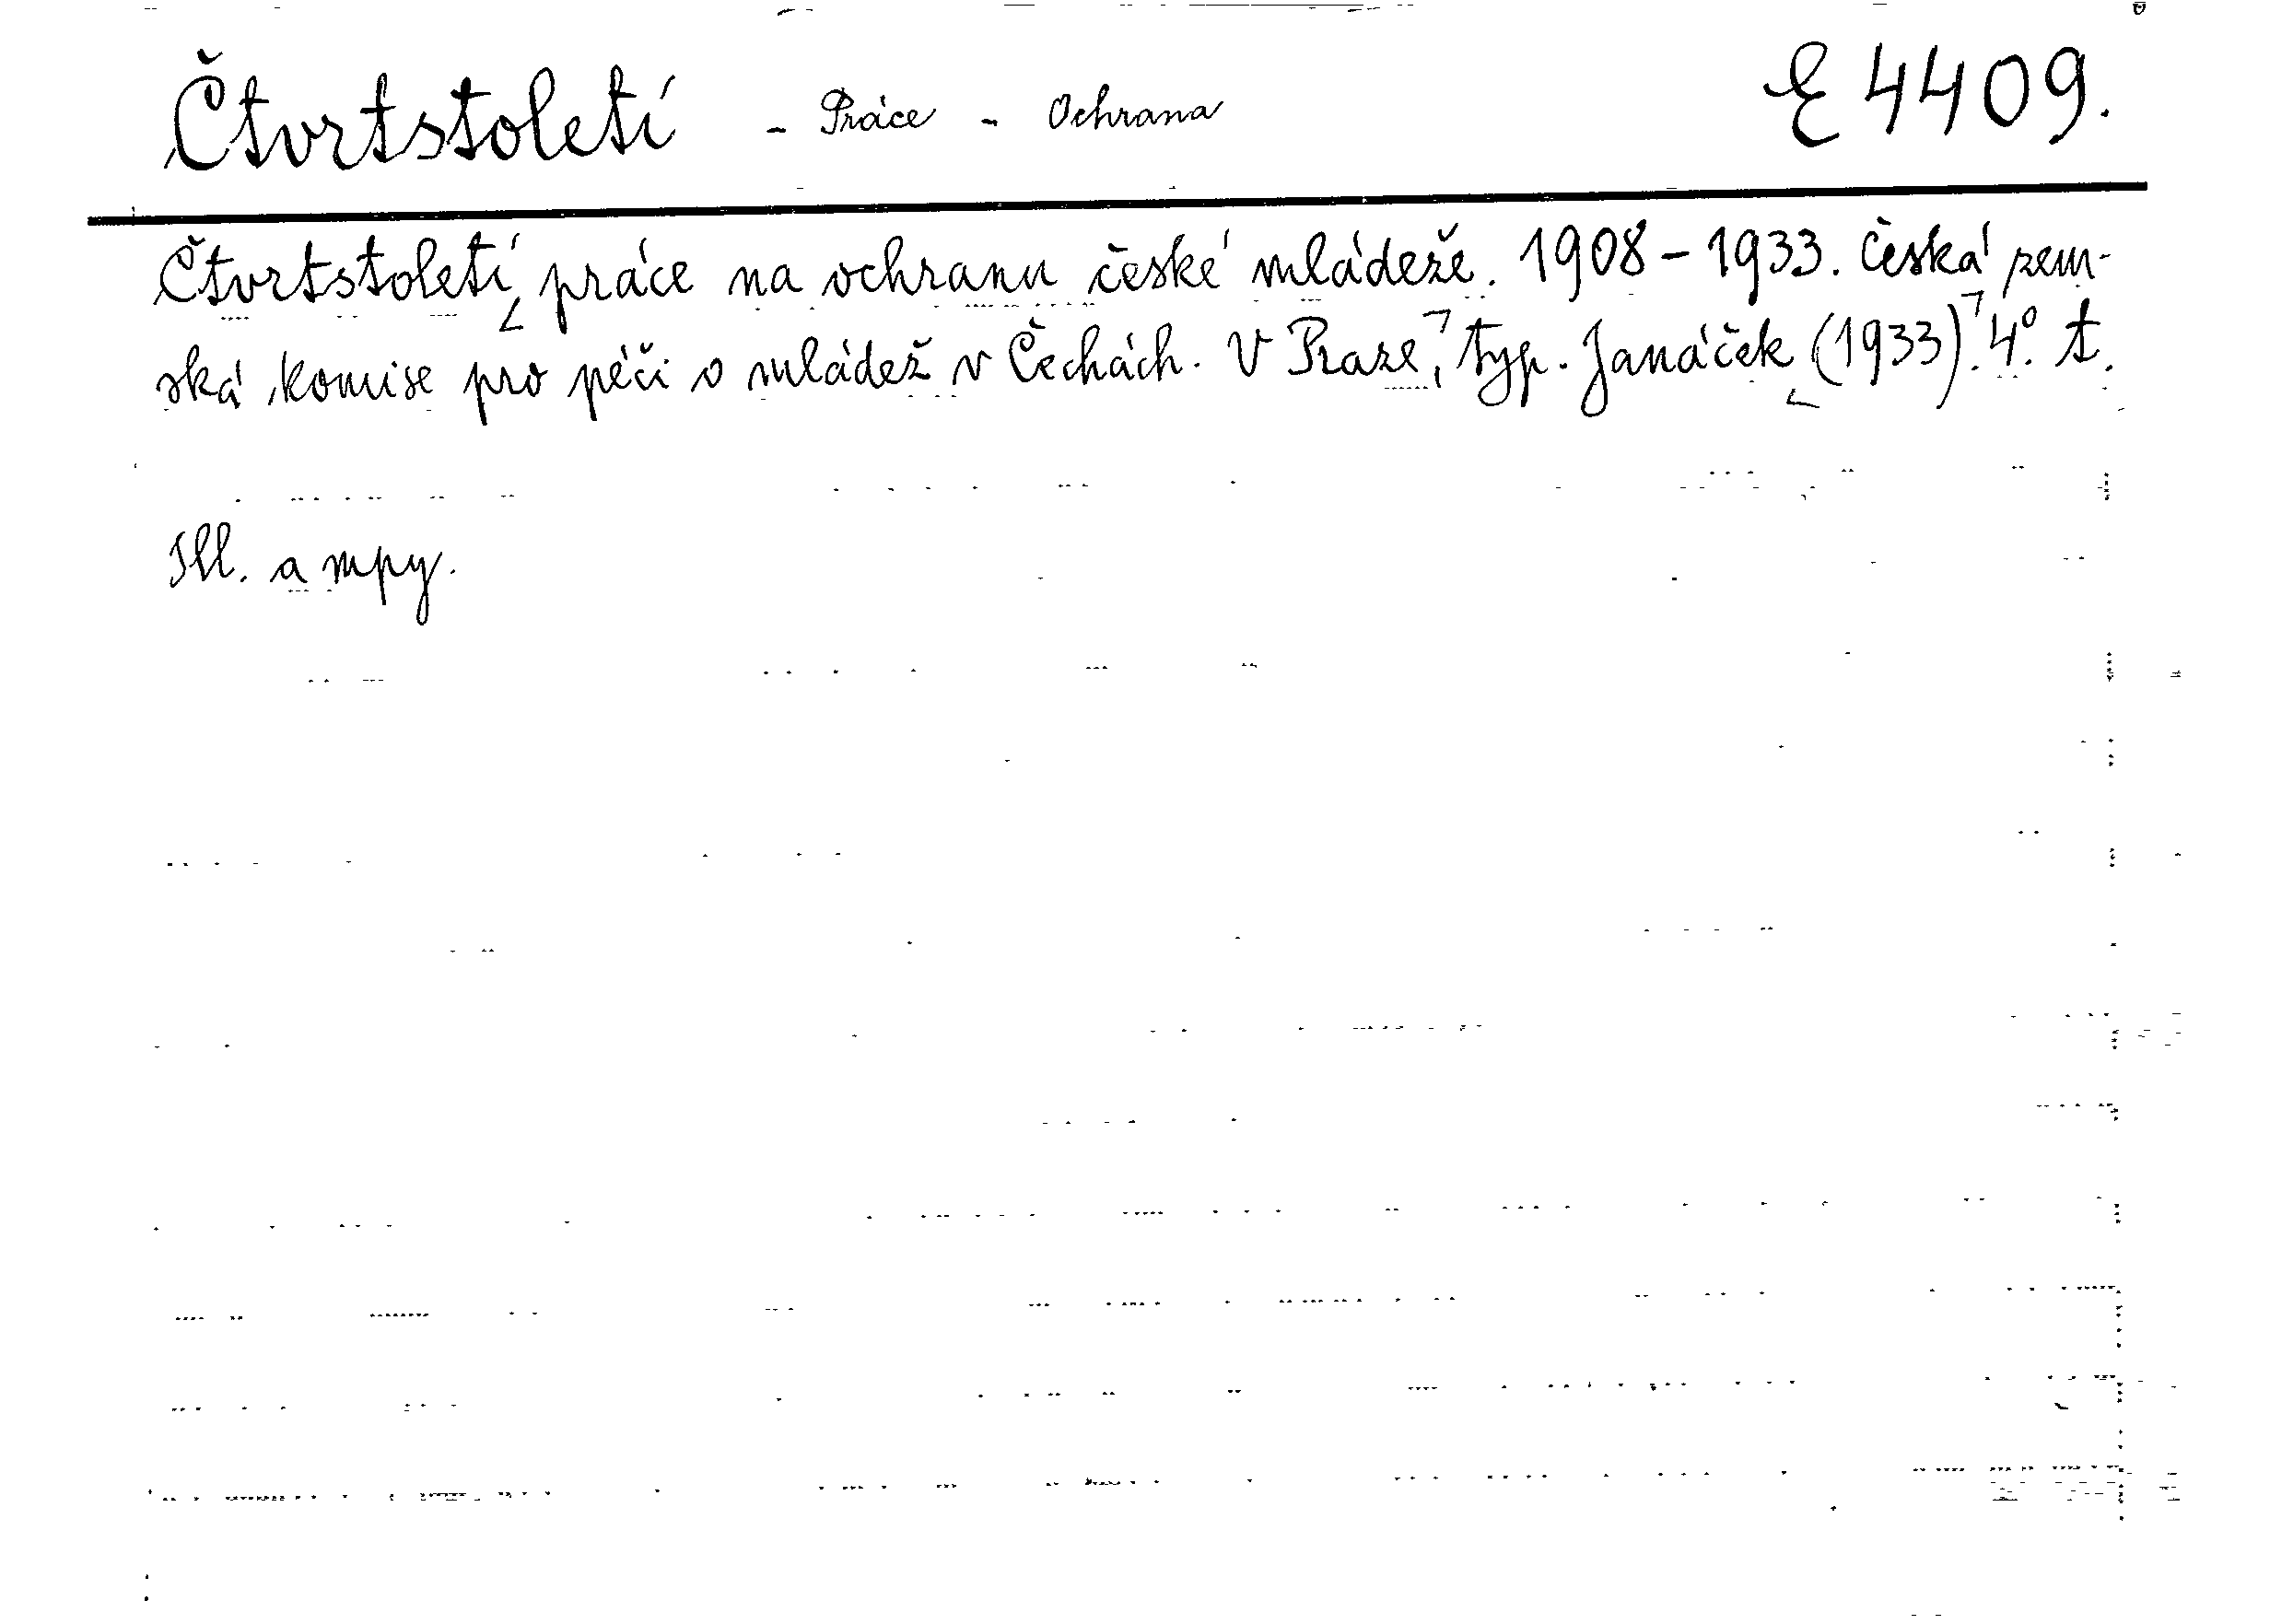 Čtvrtstoletí - Práce - Ochrana E 4409.
Čtvrtstoletí práce na ochranu české mládeže. 1908-1933. Česká zem-
ská komise pro péči o mládež v Čechách. V Praze, typ. Janáček (1933). 4°. t.
Ill. a mpy.